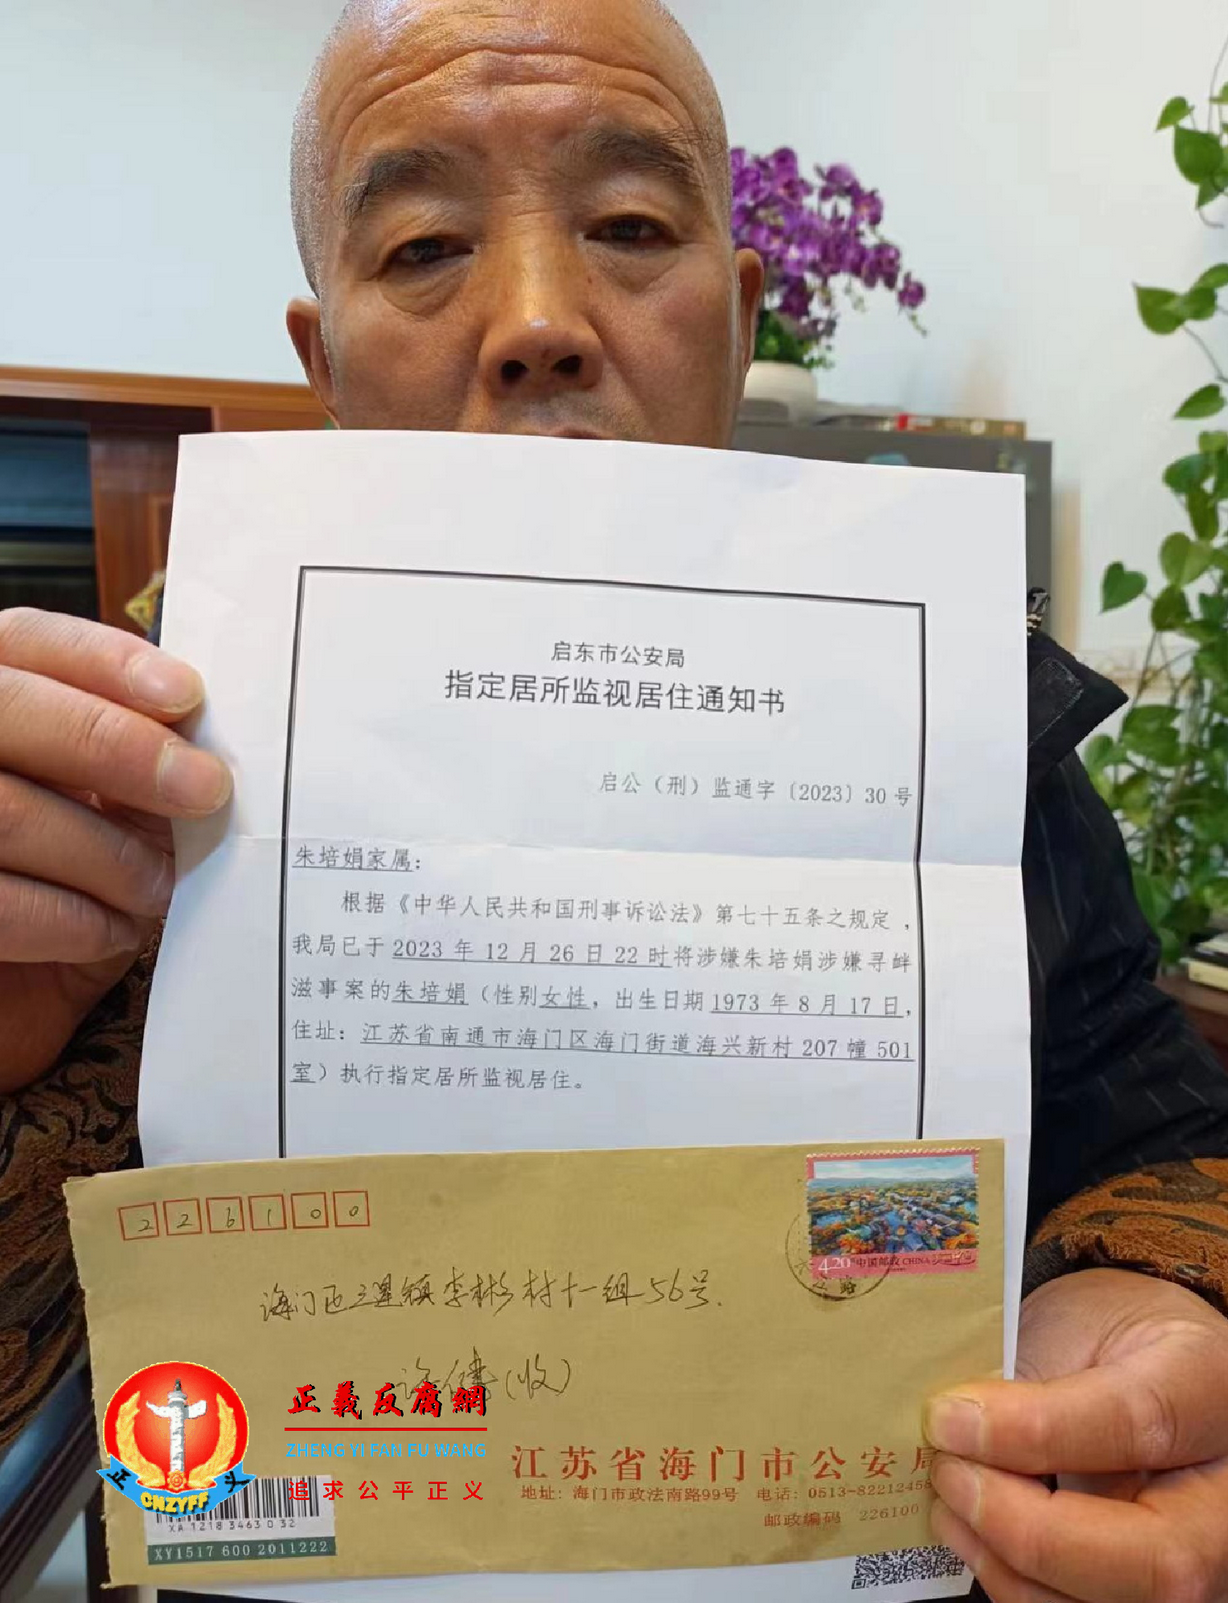 启东市公安局
指定居所监视居住通知书
启公（刑）监通字〔2023〕30 号
朱培娟家属：
根据《中华人民共和国刑事诉讼法》第七十五条之规定，
我局已于 2023 年 12 月 26 日 22 时将涉嫌朱培娟涉嫌寻衅
滋事案的朱培娟（性别女性，出生日期 1973 年 8 月 17 日，
住址：江苏省南通市海门区海门街道海兴新村 207 幢 501
室）执行指定居所监视居住。
226100
4.20 中国邮政 CHINA
海门区三星镇李彬村十一组56号.
(收)
正義反腐網
ZHENG YI FAN FU WANG
追求公平正义
正
义
CNZYFF
江苏省海门市公安局
地址：海门市政法南路99号 电话：0513-82212458
邮政编码 226100
XA 1218 3463 0 32
XY1517 600 2011222